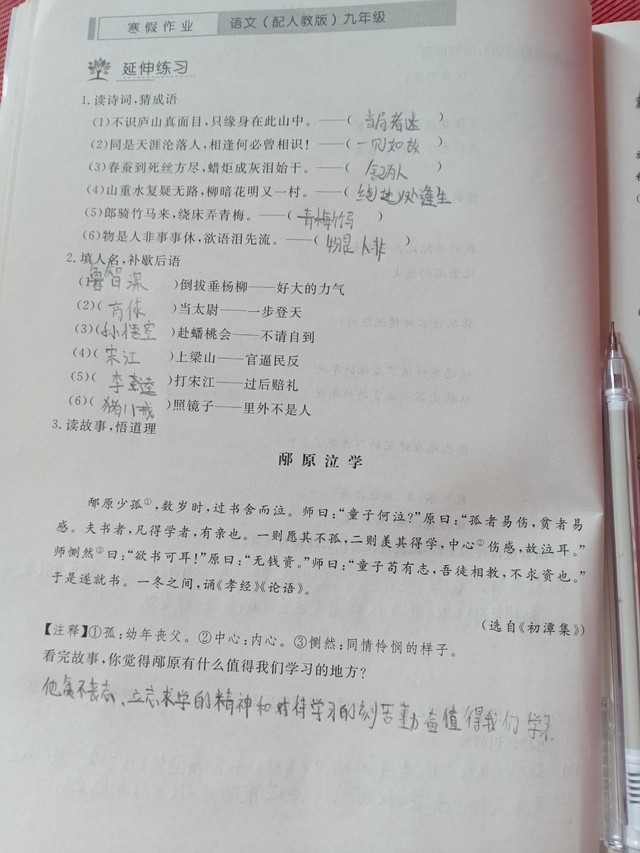 寒假作业 语文（配人教版）九年级
延伸练习
1.读诗词，猜成语
(1)不识庐山真面目，只缘身在此山中。——( 当局者迷 )
(2)同是天涯沦落人，相逢何必曾相识！——( 一见如故 )
(3)春蚕到死丝方尽，蜡炬成灰泪始干。——( 舍己为人 )
(4)山重水复疑无路，柳暗花明又一村。——( 绝处逢生 )
(5)郎骑竹马来，绕床弄青梅。——( 青梅竹马 )
(6)物是人非事事休，欲语泪先流。——( 物是人非 )
2.填人名，补歇后语
( 鲁智深 )倒拔垂杨柳——好大的力气
(2)( 高俅 )当太尉——一步登天
(3)( 孙悟空 )赴蟠桃会——不请自到
(4)( 宋江 )上梁山——官逼民反
(5)( 李逵 )打宋江——过后赔礼
(6)( 猪八戒 )照镜子——里外不是人
3.读故事，悟道理
邴原泣学
邴原少孤①，数岁时，过书舍而泣。师曰：“童子何泣？”原曰：“孤者易伤，贫者易
感。夫书者，凡得学者，有亲也。一则愿其不孤，二则羡其得学，中心②伤感，故泣耳。”
师恻然③曰：“欲书可耳！”原曰：“无钱资。”师曰：“童子苟有志，吾徒相教，不求资也。”
于是遂就书。一冬之间，诵《孝经》《论语》。
（选自《初潭集》）
【注释】①孤：幼年丧父。②中心：内心。③恻然：同情怜悯的样子。
看完故事，你觉得邴原有什么值得我们学习的地方？
他贫不丧志、立志求学的精神和对待学习的刻苦勤奋值得我们学习